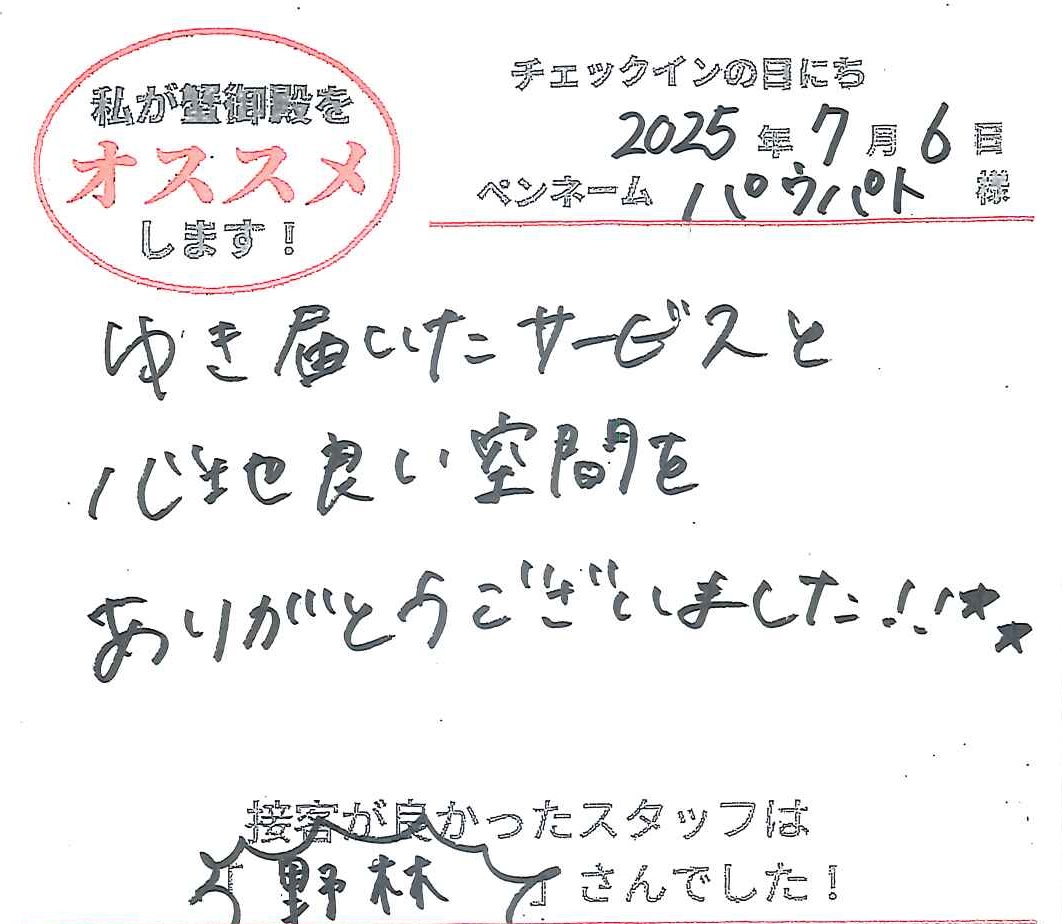 私が蟹御殿を
オススメ
します！
チェックインの日にち
2025年7月6日
ペンネーム パウパト 様
ゆき届いたサービスと
心地良い空間を
ありがとうございました!!★★
接客が良かったスタッフは
「野林」さんでした！